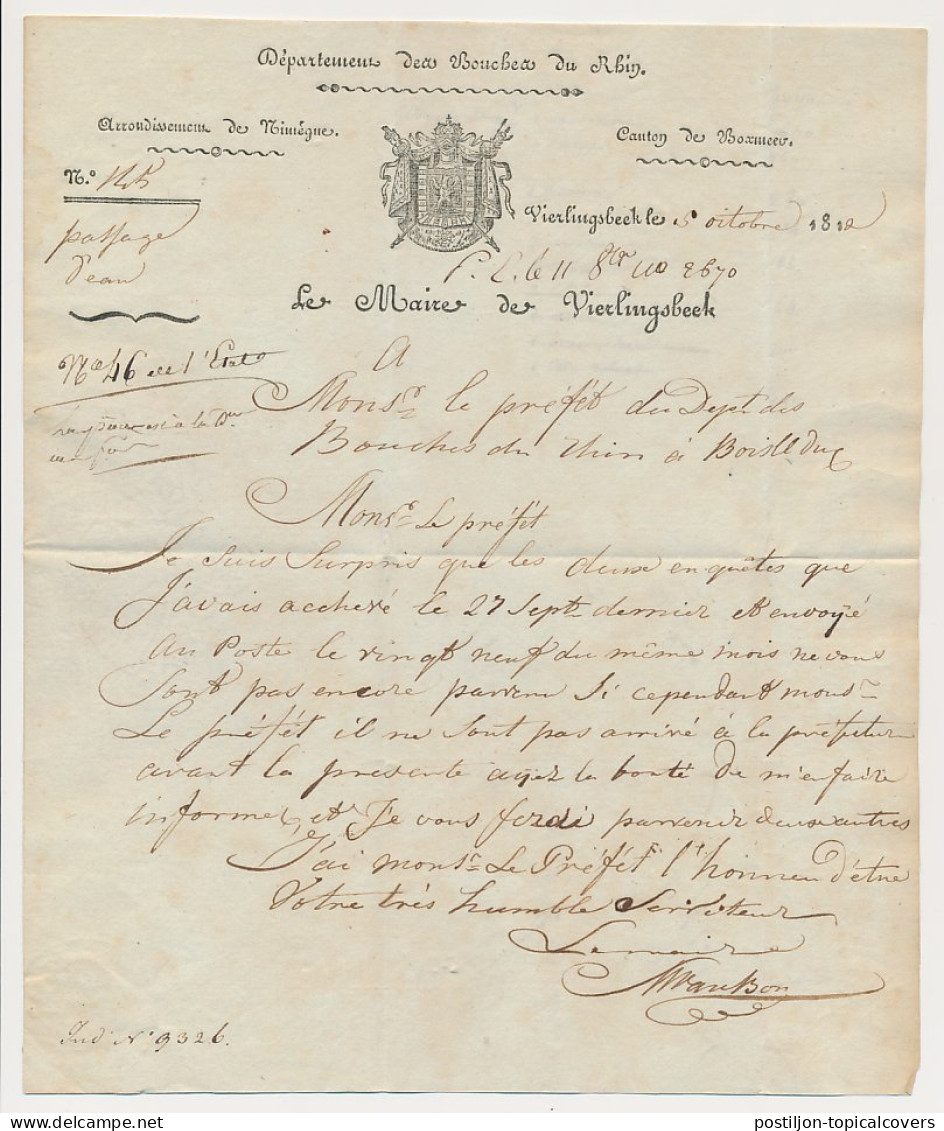 Département des Bouches du Rhin.
Arrondissement de Nimègue.
Canton de Boxmeer.
N.º
passage
d'eau
Vierlingsbeek le 5 octobre 1812
le 11 8br no 2670
Le Maire de Vierlingsbeek
46 de l'Etat
A
Monsr. le préfét du Dept. des
Bouches du Rhin à Bois le Duc
Monsr. Le préfét
Je suis surpris que les deux enquêtes que
J'avais accheré le 27 Sept. dernier et envoyé
au Poste le vingt neuf du même mois ne vous
sont pas encore parvenu si cependant monsr
Le préfét il ne sont pas arrivé à la préfétur
avant la presente ayez la bonté de m'en faire
informer et Je vous ferai parvenir deux autres
J'ai monsr. Le Préfét l'honneu d'étre
Votre très humble Serviteur
Le maire
M van Bon
Ind. Nº 9326.
postiljon-topicalcovers